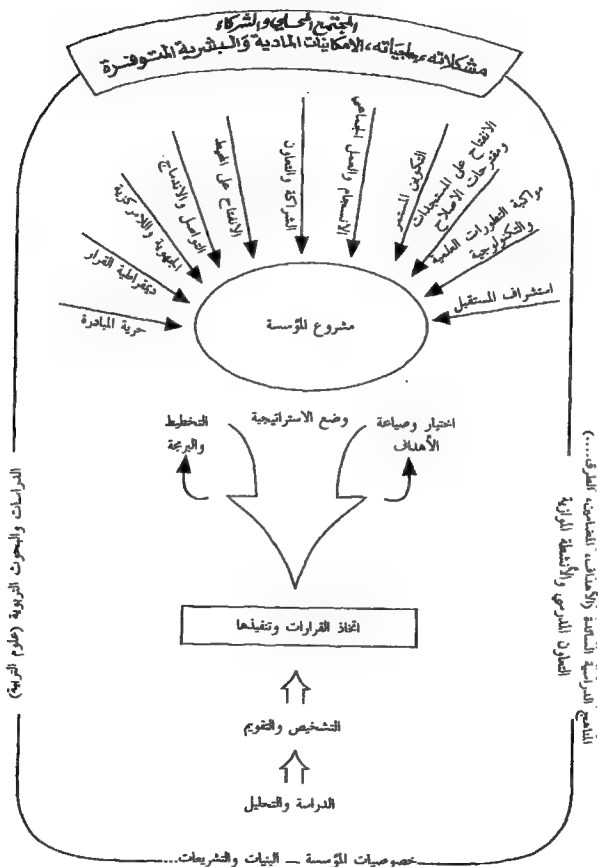 المجتمع المحلي والشركاء
مشكلاته، حاجياته، الامكانيات المادية والبشرية المتوفرة
استشراف المستقبل
مواكبة التطورات العلمية
والتكنولوجية
الانفتاح على المستجدات
ومقترحات الاصلاح
التكوين المستمر
الانسجام والعمل الجماعي
الشراكة والتعاون
الانفتاح على المحيط
التواصل والاندماج
الجهوية واللامركزية
ديمقراطية القرار
حرية المبادرة
مشروع المؤسسة
اختيار وصياعة
الأهداف
وضع الاستراتيجية
التخطيط
والبرمجة
اتخاذ القرارات وتنفيذها
التشخيص والتقويم
الدراسة والتحليل
المناهج الدراسية السائدة (الأهداف، المضامين، الطرق....)
التعاون المدرسي والأنشطة الموازية
الدراسات والبحوث التربوية (علوم التربية)
خصوصيات المؤسسة ــ البنيات والتشريعات...